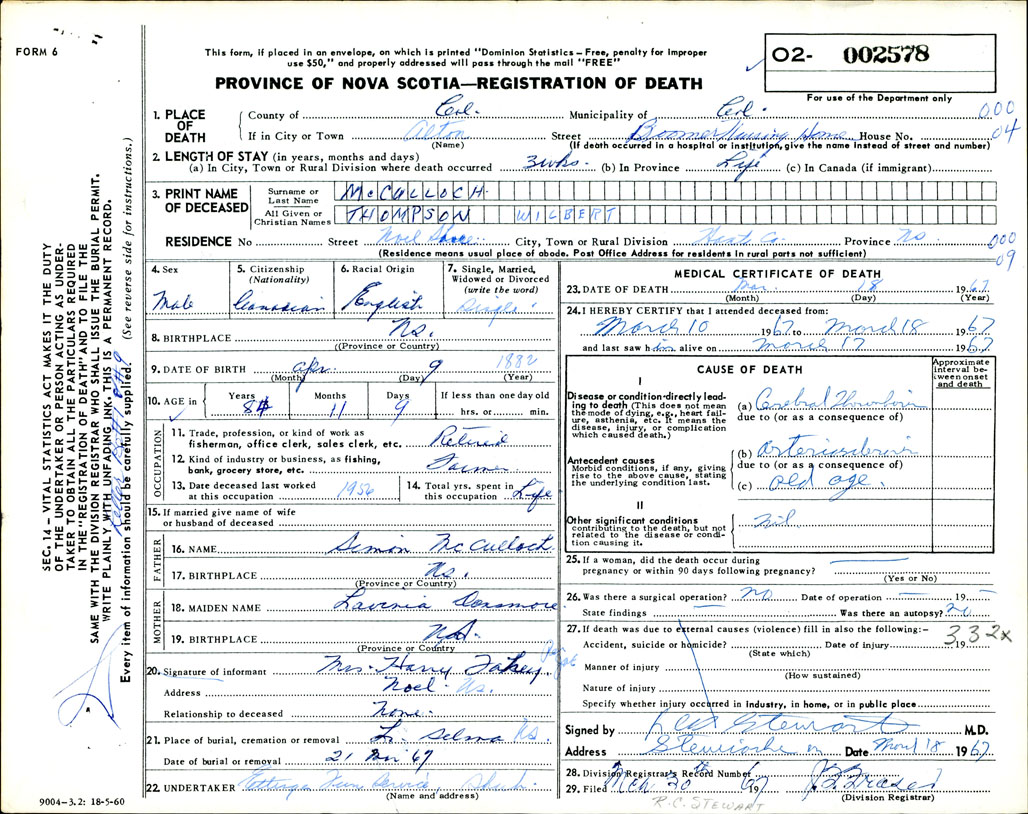 FORM 6
This form, if placed in an envelope, on which is printed "Dominion Statistics – Free, penalty for improper
use $50," and properly addressed will pass through the mail "FREE"
PROVINCE OF NOVA SCOTIA—REGISTRATION OF DEATH
02- 002578
For use of the Department only
1. PLACE OF DEATH
County of Col. Municipality of Col. 000
If in City or Town Alton Street Boomer Nursing Home House No. 04
(Name) (If death occurred in a hospital or institution, give the name instead of street and number)
2. LENGTH OF STAY (in years, months and days)
(a) In City, Town or Rural Division where death occurred 3 wks. (b) In Province Life (c) In Canada (if immigrant)
3. PRINT NAME OF DECEASED
Surname or Last Name McCULLOCH
All Given or Christian Names THOMPSON WILBERT
RESIDENCE No Street Noel Shore City, Town or Rural Division Hants Co. Province NS. 000
(Residence means usual place of abode. Post Office Address for residents in rural parts not sufficient) 09
4. Sex
Male
5. Citizenship
(Nationality)
Canadian
6. Racial Origin
English
7. Single, Married,
Widowed or Divorced
(write the word)
Single
8. BIRTHPLACE Ns.
((Province or Country)
9. DATE OF BIRTH Apr. 9 1882
(Month) (Day) (Year)
10. AGE in Years Months Days If less than one day old
84 11 9 hrs. or min.
OCCUPATION
11. Trade, profession, or kind of work as
fisherman, office clerk, sales clerk, etc. Retired
12. Kind of industry or business, as fishing,
bank, grocery store, etc. Farmer
13. Date deceased last worked
at this occupation 1956
14. Total yrs. spent in
this occupation Life
15. If married give name of wife
or husband of deceased
FATHER
16. NAME Simon McCulloch
17. BIRTHPLACE Ns.
(Province or Country)
MOTHER
18. MAIDEN NAME Lavinia Densmore
19. BIRTHPLACE NS.
(Province or Country)
20. Signature of informant Mrs. Harry Fahey
Address Noel Ns.
Relationship to deceased None.
21. Place of burial, cremation or removal Selma Ns.
Date of burial or removal 21 Mar 67
22. UNDERTAKER Ettinger Fun Service, Shub.
(Name and address)
MEDICAL CERTIFICATE OF DEATH
23. DATE OF DEATH Mar. 18 1967
(Month) (Day) (Year)
24. I HEREBY CERTIFY that I attended deceased from:
March 10 1967 to March 18 1967
and last saw him alive on March 17 1967
CAUSE OF DEATH
Approximate
interval be-
tween onset
and death
I
Disease or condition directly lead-
ing to death (This does not mean
the mode of dying, e.g., heart fail-
ure, asthenia, etc. It means the
disease, injury, or complication
which caused death.)
(a) Cerebral Thrombosis
due to (or as a consequence of)
Antecedent causes
Morbid conditions, if any, giving
rise to the above cause, stating
the underlying condition last.
(b) Arteriosclerosis
due to (or as a consequence of)
(c) old age.
II
Other significant conditions
contributing to the death, but not
related to the disease or condi-
tion causing it.
Nil
25. If a woman, did the death occur during
pregnancy or within 90 days following pregnancy?
(Yes or No)
26. Was there a surgical operation? NO Date of operation — 19 —
State findings — Was there an autopsy? No
27. If death was due to external causes (violence) fill in also the following:– 332x
Accident, suicide or homicide? Date of injury 19
(State which)
Manner of injury
(How sustained)
Nature of injury
Specify whether injury occurred in industry, in home, or in public place
Signed by RC Stewart M.D.
Address Stewiacke Date March 18 1967
28. Division Registrar's Record Number
29. Filed Mch 20th 1967
(Division Registrar)
R.C. STEWART
9004–3.2: 18-5-60
SEC. 14 – VITAL STATISTICS ACT MAKES IT THE DUTY
OF THE UNDERTAKER OR PERSON ACTING AS UNDER-
TAKER TO OBTAIN ALL THE PARTICULARS REQUIRED
IN THE "REGISTRATION OF DEATH" AND TO FILE THE
SAME WITH THE DIVISION REGISTRAR WHO SHALL ISSUE THE BURIAL PERMIT.
WRITE PLAINLY WITH UNFADING INK. THIS IS A PERMANENT RECORD.
Every item of information should be carefully supplied. (See reverse side for instructions.)